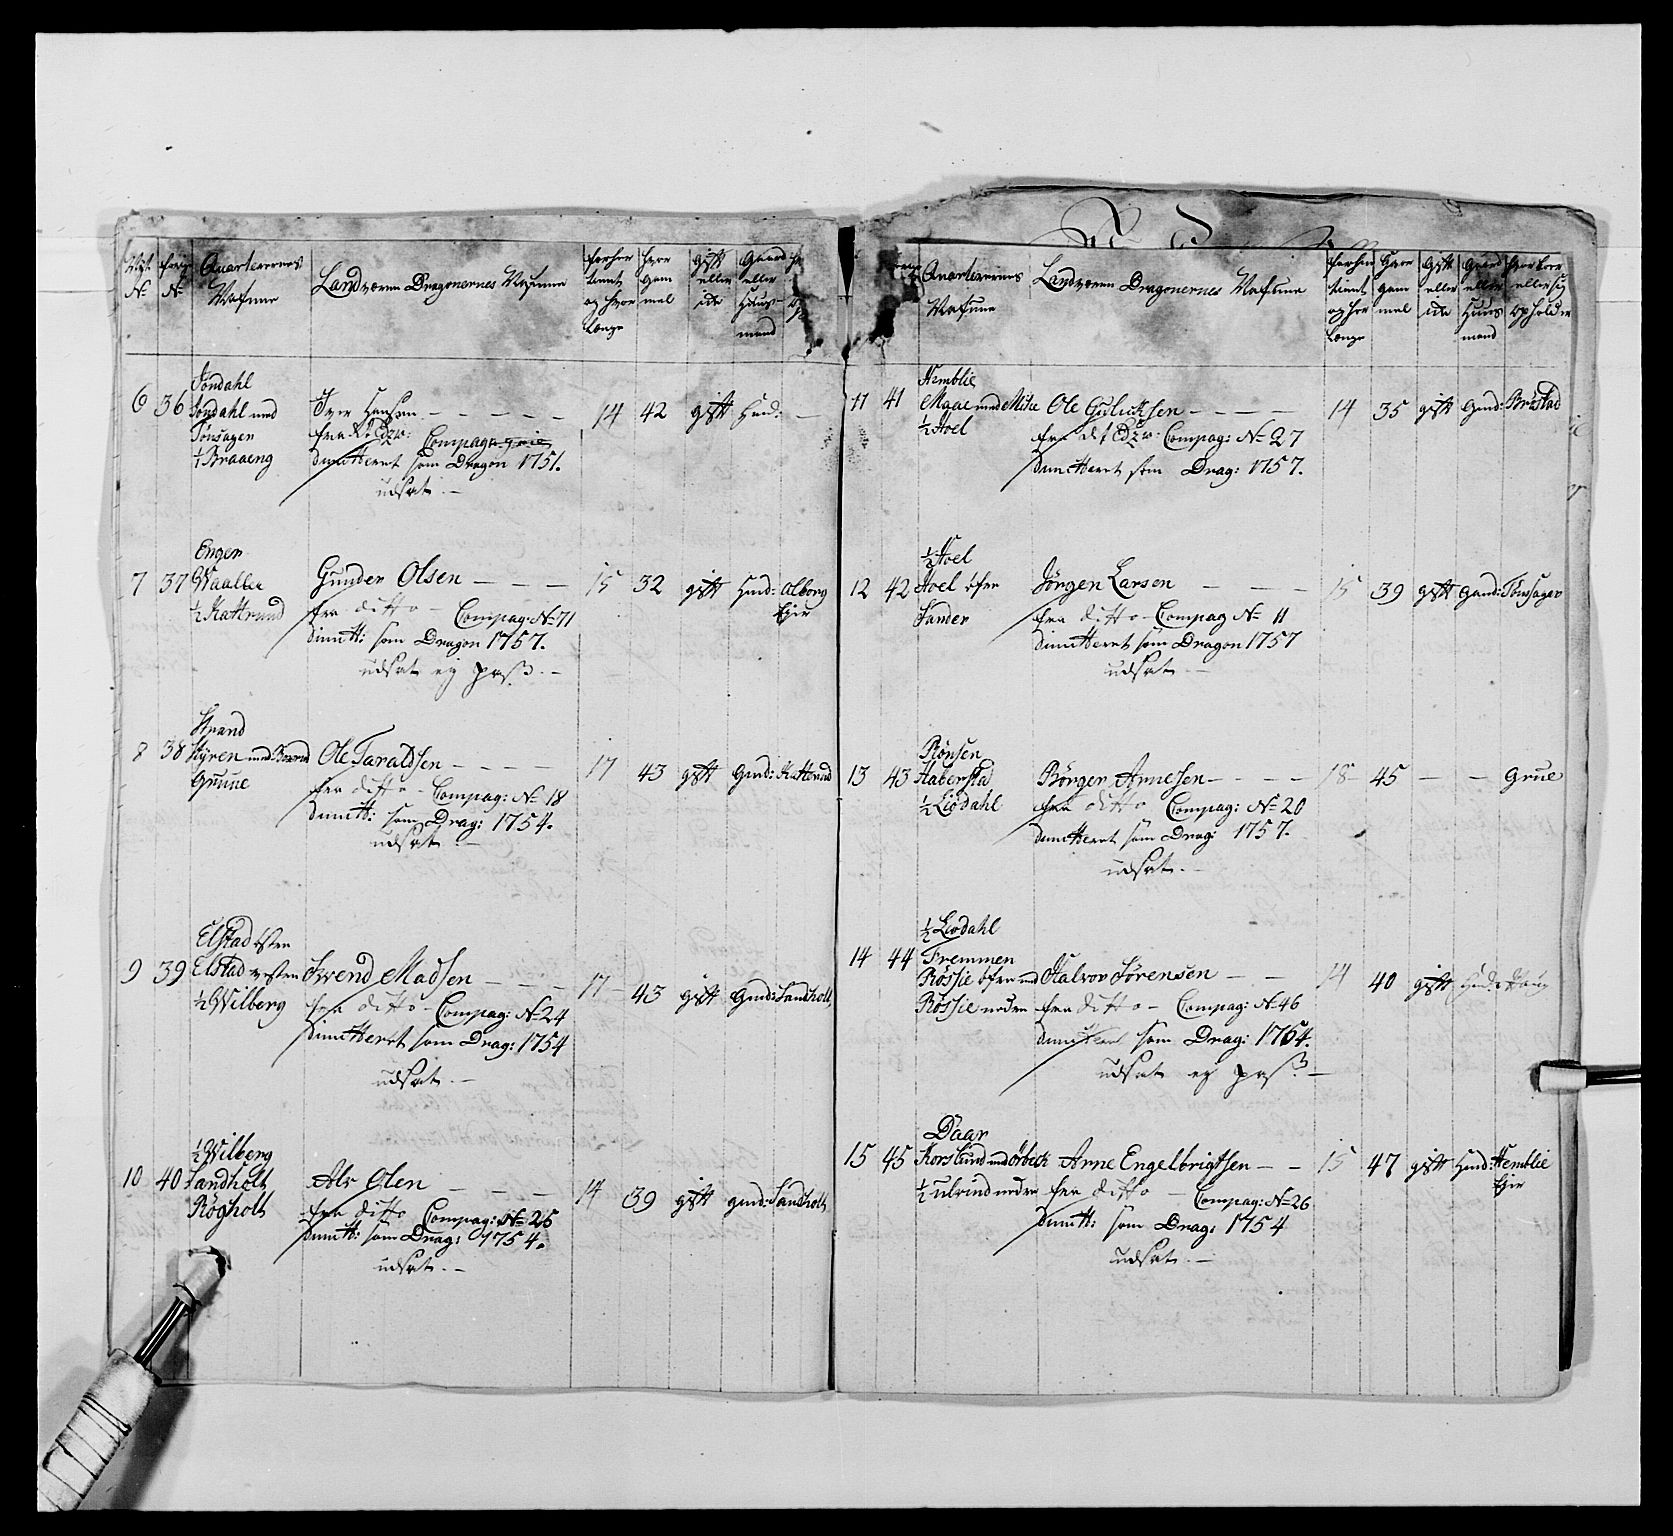 Quarterernes Nafune
Landværn Dragonernes Nafune
forhen tient og hvor længe
hvor gam mel
gift eller ide
Gaard eller Huus mand
6 36
Jondahl
Jondahl med
Tonsagen
½ Braaeng
Iver Hansen
fra Compag:
Dimitteret som Dragon 1751.
udsat.
14 42 gift Hmd:
7 37
Enger
Waaller
½ Kattrud
Gunder Olsen
fra ditto Compag: No 71
Dimitt: som Dragon 1757.
udsat ey pass.
15 32 gift Hmd: Alborg Ejer
8 38
Strand
Styren med
Gruue
Ole Taraldsen
fra ditto Compag: No 18
Dimitt: som Drag: 1754.
udsat
17 43 gift Gmd: Kattrud
9 39
Elstad østen
Elstad westen
½ Wilberg
Svend Madsen
fra ditto Compag: No 24
Dimitteret som Drag: 1754
udsat.
17 43 gift Gmd: Sandholt
10 40
½ Wilberg
Sandholt
Rögholt
Ole Olsen
fra ditto Compag: No 25
Dimitt: som Drag: 1754.
udsat.
14 39 gift gmd: Sandholt
Quarterernes Nafune
Landværn Dragonernes Nafune
forhen tient og hvor længe
Hvor gam mel
Gift eller ide
Gaard eller Huus mand
Hvor hver eller sig opholder
11 41
Hemblie
Mgae med Mike
½ Hoel
Ole Guluksen
fra Compag: No 27
Dimitteret som Drag: 1757.
14 35 gift Gmd: Bröstad
12 42
½ Hoel
Hoel öfre
Sander
Jörgen Larsen
fra ditto Compag No 11
Dimitteret som Dragon 1757
udsat
15 39 gift Gaard: Tonsagen
13 43
Rönsen
Haberstad
½ Liodahl
Börger Arnesen
fra ditto Compag: No 20
Dimitteret som Drag: 1757.
udsat.
18 45 Grue
14 44
½ Liodahl
Fremmen
Rössie öfre med
Rössie nedre
Halvor Sörensen
fra ditto Compag: No 46
Dimitteret som Drag: 1764.
udsat ey pass
14 40 gift Hmd:
15 45
Daar
Korslund med Örbeck
½ ulvind nedre
Arne Engelbrigtsen
fra ditto Compag: No 26
Dimitt: som Drag: 1754
udsat.
15 47 gift Hmd: Hemblie Ejer